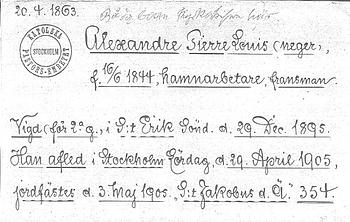 20. 4. 1863.
KATOLSKA PASTORS-EMBETET
STOCKHOLM
Alexandre Pierre Louis (neger),
f. 16/6 1844, hamnarbetare, fransman.
Vigd (för 2:a g.) i S:t Erik Sönd. d. 29. Dec. 1895.
Han afled i Stockholm Lördag, d. 29. April 1905,
jordfästes d. 3. Maj 1905. "S:t Jakobus d. Ä." 354